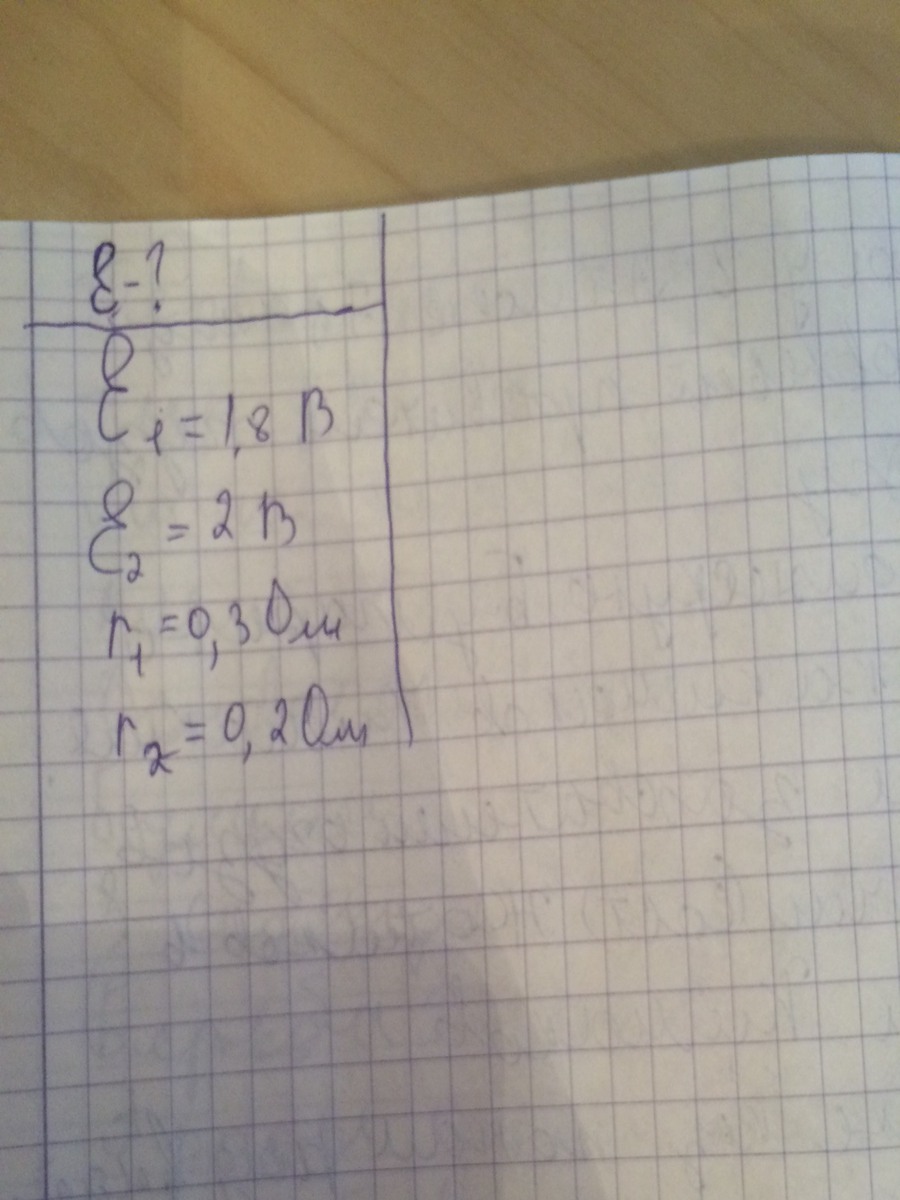 ℰ-?
ℰ₁ = 1,8 В
ℰ₂ = 2 В
r₁ = 0,3 Ом
r₂ = 0,2 Ом